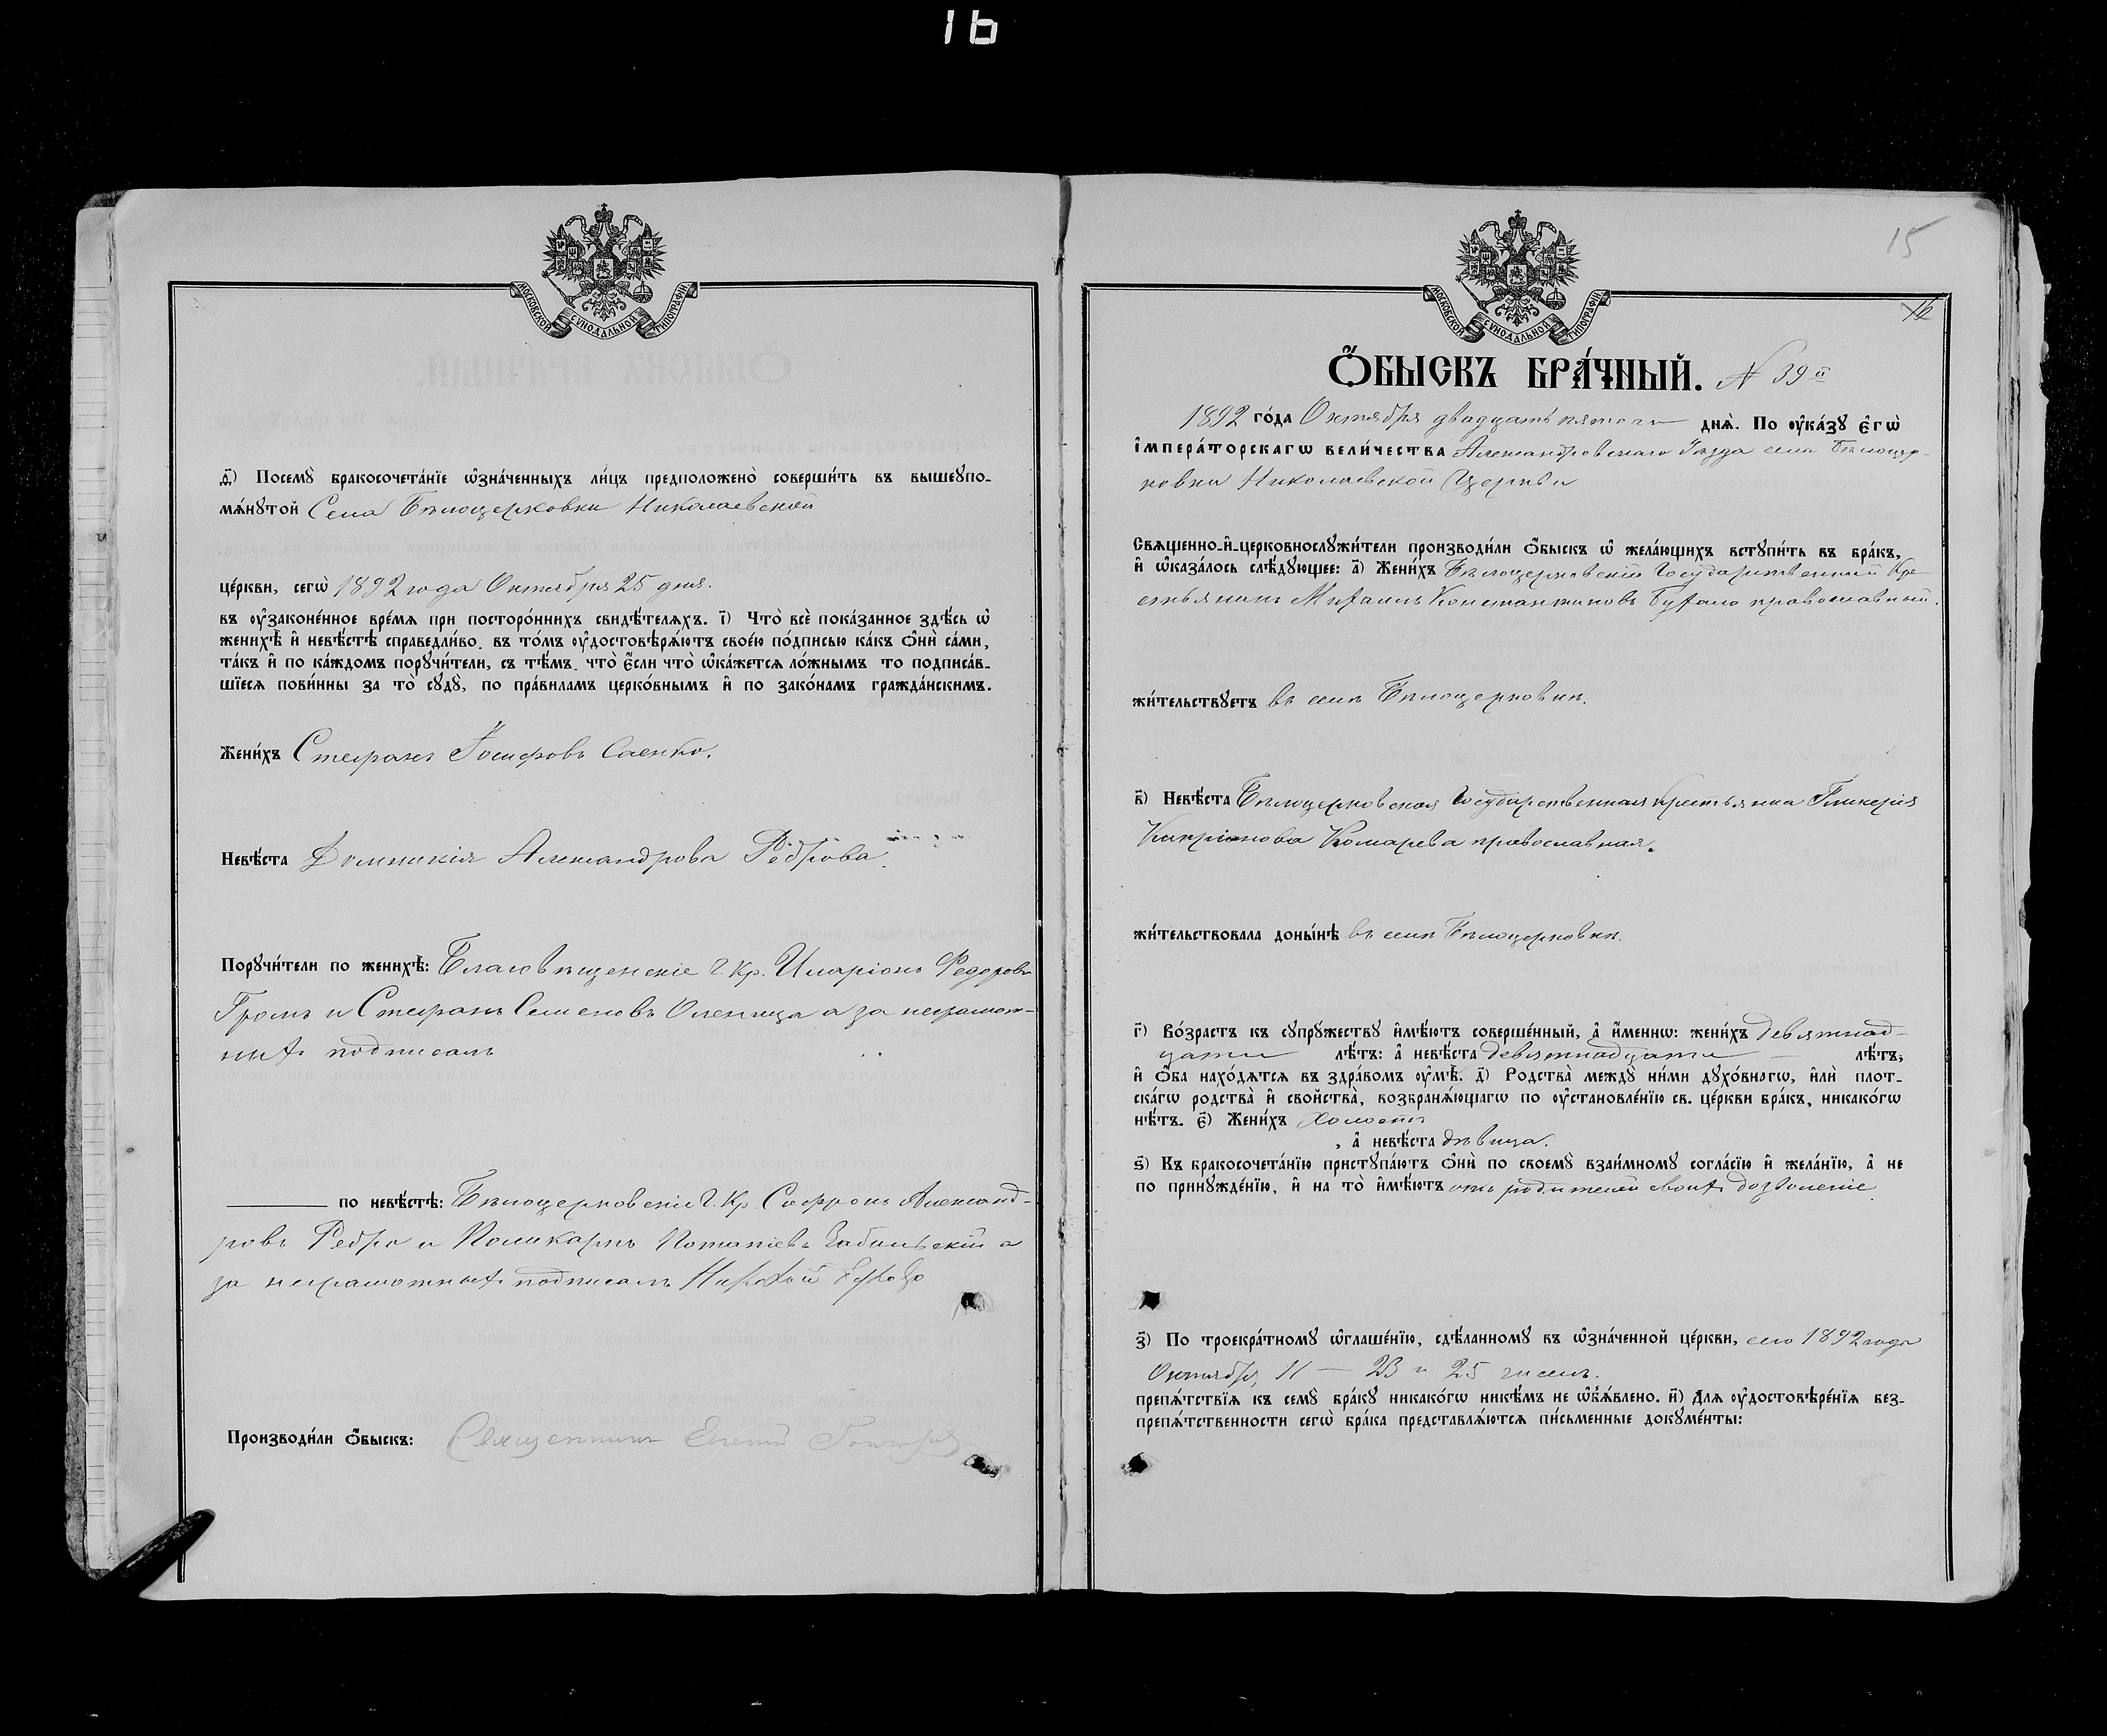 16
МОСКОВСКОЙ СУНОДАЛЬНОЙ ТИПОГРАФІИ
д҃і) Посемꙋ̀ бракосочета́нїе ѡ҆зна́ченныхъ ли́цъ предположено̀ соверши́ть въ вышеꙋпо-
мѧ́нꙋтой Села Бѣлоцерковки Николаевской
це́ркви, сегѡ̀ 1892 года Октября 25 дня.
въ ᲂу҆законе́нное вре́мѧ при посторо́ннихъ свидѣ́телѧхъ. і҃) Что̀ всѐ пока́занное здѣ́сь ѡ҆
женихѣ̀ и҆ невѣ́стѣ справедли́во, въ то́мъ ᲂу҆достовѣрѧ́ютъ свое́ю по́дписью ка́къ ѻ҆нѝ са́ми,
та́къ и҆ по ка́ждомъ порꙋчи́тели, съ тѣ́мъ, что̀ є҆́сли что̀ ѡ҆ка́жетсѧ ло́жнымъ то подписа́в-
шїесѧ пови́нны за то̀ сꙋдꙋ̀, по пра́виламъ церко́внымъ и҆ по зако́намъ гражда́нскимъ.
Жени́хъ Стефанъ Іосифовъ Саенко.
Невѣ́ста Домникія Александрова Редрова.
Порꙋчи́тели по женихѣ̀: Благовѣщенскіе Г. Кр. Иларіонъ Федоровъ
Громъ и Стефанъ Семеновъ Оленица а за неграмот-
ныхъ подписалъ
по невѣ́стѣ: Бѣлоцерковскіе Г. Кр. Софронъ Александ-
ровъ Редро и Поликарпъ Потапіевъ Забильскій а
за неграмотныхъ подписалъ
Производи́ли ѻ҆́быскъ: Священникъ
15
16
МОСКОВСКОЙ СУНОДАЛЬНОЙ ТИПОГРАФІИ
Ѻ҆́БЫСКЪ БРА́ЧНЫЙ. N 39й
1892 го́да Октября двадцать пятаго днѧ̀. По ᲂу҆ка́зꙋ є҆гѡ̀
і҆мпера́торскагѡ вели́чества Александровскаго Уѣзда села Бѣлоцер-
ковки Николаевской Церкви
Свѧщенно-и҆-церковнослꙋжи́тели производи́ли ѻ҆́быскъ ѡ҆ жела́ющихъ встꙋпи́ть въ бра́къ,
и҆ ѡ҆каза́лось слѣ́дꙋющее: а҃) Жени́хъ Бѣлоцерковскій Государственный Кре
стьянинъ Михаилъ Константиновъ Бухало православный.
жи́тельствꙋетъ въ селѣ Бѣлоцерковкѣ.
в҃) Невѣ́ста Бѣлоцерковская Государственная крестьянка Гликерія
Кипріянова Комарева православная.
жи́тельствовала доны́нѣ въ селѣ Бѣлоцерковкѣ.
г҃) Во́зрастъ къ сꙋпрꙋжествꙋ и҆мѣ́ютъ соверше́нный, а҆ и҆́меннѡ: жени́хъ девятнад-
цати лѣ́тъ: а҆ невѣ́ста девятнадцати лѣ́тъ,
и҆ ѻ҆́ба нахо́дѧтсѧ въ здра́вомъ ᲂу҆мѣ̀. д҃) Родства̀ междꙋ̀ ни́ми дꙋхо́внагѡ, и҆лѝ плот-
ска́гѡ родства̀ и҆ свойства̀, возбранѧ́ющагѡ по ᲂу҆становле́нїю св. це́ркви бра́къ, никако́гѡ
нѣ́тъ. є҃) Жени́хъ Холостъ
, а҆ невѣ́ста дѣвица.
ѕ҃) Къ бракосочета́нїю пристꙋпа́ютъ ѻ҆нѝ по своемꙋ̀ взаи́мномꙋ согла́сїю и҆ жела́нїю, а҆ не
по принꙋжде́нїю, и҆ на то̀ и҆мѣ́ютъ отъ родителей своихъ дозволеніе
з҃) По троекра́тномꙋ ѡ҆глаше́нїю, сдѣ́ланномꙋ въ ѡ҆зна́ченной це́ркви, сего 1892 года
Октября, 11 — 23 и 25 числъ.
препѧ́тствїѧ къ семꙋ̀ бра́кꙋ никако́гѡ никѣ́мъ не ѡ҆б̾ѧ́влено. и҃) Длѧ ᲂу҆достовѣре́нїѧ без-
препѧ́тственности сегѡ̀ бра́ка представлѧ́ютсѧ пи́сьменные докꙋме́нты: